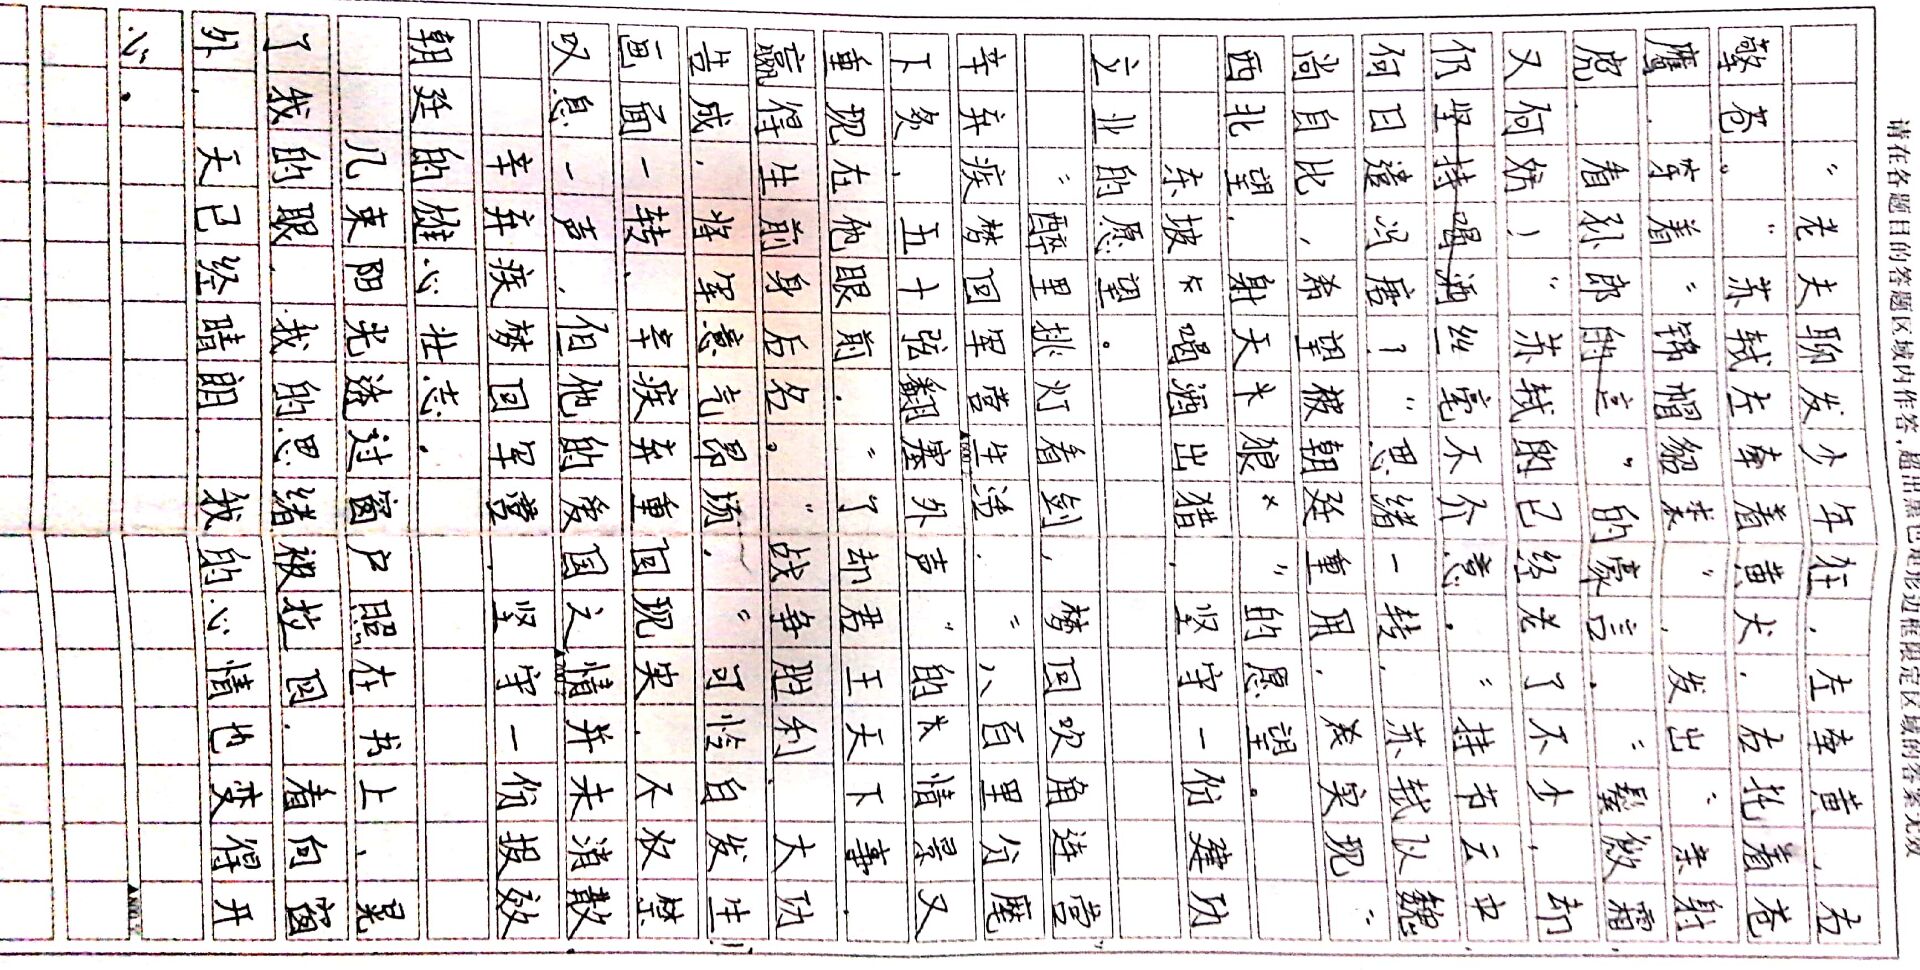 请在各题目的答题区域内作答,超出黑色矩形边框限定区域的答案无效
"老夫聊发少年狂,左牵黄,右
擎苍。"苏轼左牵着黄犬,右托着苍
鹰,穿着"锦帽貂裘",发出"亲射
虎,看孙郎"的豪言,"鬓微霜,
又何妨!"苏轼的已经老了不少,却
仍丝毫不介意。"持节云中,
何日遣冯唐?"思绪一转,苏轼以魏
尚自比,希望被朝廷重用,实现"
西北望,射天狼"的愿望。
东坡喝酒出猎,坚守一份建功
立业的愿望。
"醉里挑灯看剑,梦回吹角连营"
辛弃疾梦回军营生活,"八百里分麾
下炙,五十弦翻塞外声"的情景又
重现在他眼前,"了却君王天下事,
赢得生前身后名。"战争胜利,大功
告成,将军意气昂扬,"可怜白发生!"
画面一转,辛疾弃重回现实,不
叹息一声,但他的爱国之情并未消散。
辛弃疾梦回军营,坚守一份报效
朝廷的雄心壮志。
几束阳光透过窗户照在书上,晃
了我的眼,我的思绪被拉回,看向窗
外,天已经晴朗,我的心情也变得开
心。